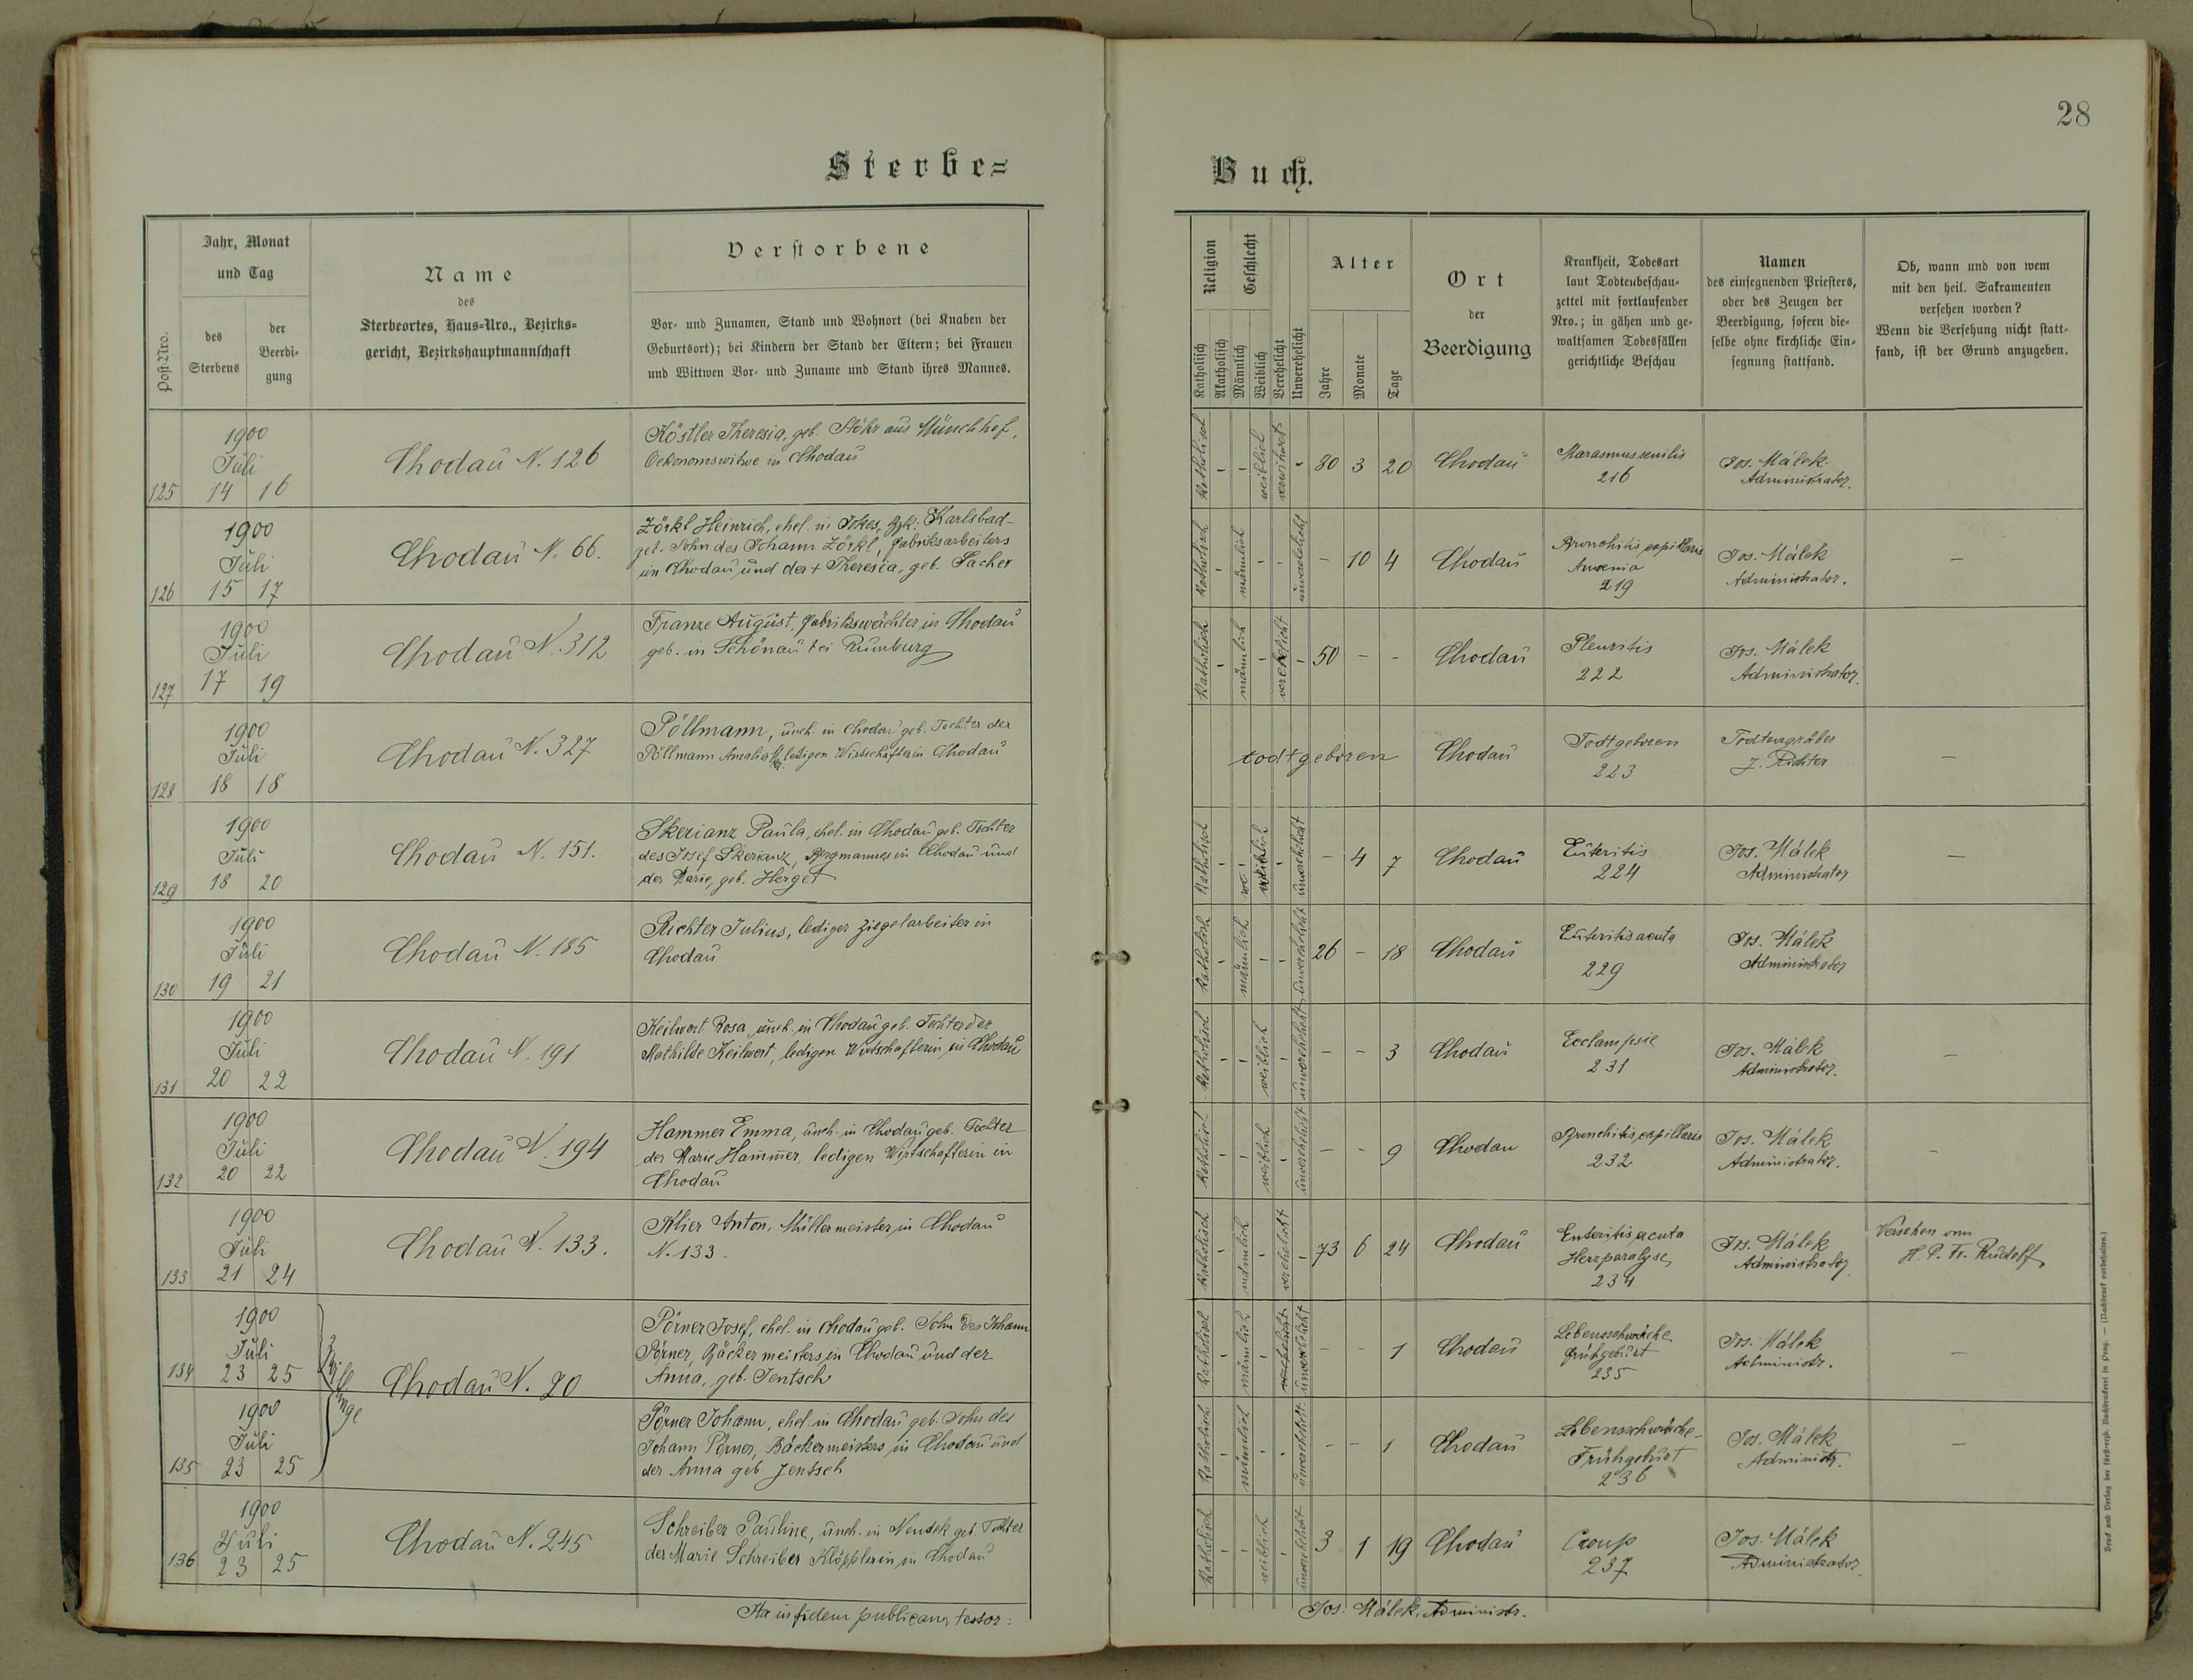 28
Sterbe=
Buch.
Post-Nro.
Jahr, Monat
und Tag
des
Sterbens
der
Beerdi-
gung
Name
des
Sterbeortes, Haus-Nro., Bezirks-
gericht, Bezirkshauptmannschaft
Verstorbene
Vor- und Zunamen, Stand und Wohnort (bei Knaben der
Geburtsort); bei Kindern der Stand der Eltern; bei Frauen
und Wittwen Vor- und Zuname und Stand ihres Mannes.
Religion
Katholisch
Akatholisch
Geschlecht
Männlich
Weiblich
Verehelicht
Unverehelicht
Alter
Jahre
Monate
Tage
Ort
der
Beerdigung
Krankheit, Todesart
laut Todtenbeschau-
zettel mit fortlaufender
Nro.; in gähen und ge-
waltsamen Todesfällen
gerichtliche Beschau
Namen
des einsegnenden Priesters,
oder des Zeugen der
Beerdigung, sofern die-
selbe ohne kirchliche Ein-
segnung stattfand.
Ob, wann und von wem
mit den heil. Sakramenten
versehen worden?
Wenn die Versehung nicht statt-
fand, ist der Grund anzugeben.
125
1900
Juli
14 16
Chodau N. 126
Köstler Theresia, geb. Stöhr aus Münchhof,
Oekonomswitwe in Chodau
Katholisch - - weiblich verwitwet - 80 3 20
Chodau
Marasmus senilis
216
Jos. Málek
Administrator.
126
1900
Juli
15 17
Chodau N. 66.
Zörkl Heinrich, ehel. in Karlsbad-
geb. Sohn des Johann Zörkl, Fabriksarbeiters
in Chodau und der + Theresia, geb. Lacher
Katholisch - männlich - - unverehelicht - 10 4
Chodau
Bronchitis capillaris
Anaemia
219
Jos. Málek
Administrator.
-
127
1900
Juli
17 19
Chodau N. 312
Franze August, Fabrikswächter in Chodau
geb. in Schönau bei Rumburg
Katholisch - männlich - verehelicht - 50 - -
Chodau
Pleuritis
222
Jos. Málek
Administrator.
128
1900
Juli
18 18
Chodau N. 327
Pöllmann, uneh. in Chodau geb. Tochter der
Pöllmann Amalia, ledigen Wirtschafterin Chodau
todtgeboren
Chodau
Todtgeboren
223
Todtengräber
J. Richter
-
129
1900
Juli
18 20
Chodau N. 151.
Skerianz Paula, ehel. in Chodau geb. Tochter
des Josef Skerianz, Bergmannes in Chodau und
der Marie, geb. Herget
Katholisch - - weiblich - unverehelicht - 4 7
Chodau
Enteritis
224
Jos. Málek
Administrator
-
130
1900
Juli
19 21
Chodau N. 185
Richter Julius, lediger Ziegelarbeiter in
Chodau
Katholisch - männlich - - unverehelicht 26 - 18
Chodau
Enteritis acuta
229
Jos. Málek
Administrator
131
1900
Juli
20 22
Chodau N. 191
Keilwert Rosa, uneh. in Chodau geb. Tochter der
Mathilde Keilwert, ledigen Wirtschafterin in Chodau
Katholisch - - weiblich - unverehelicht - - 3
Chodau
Ecclampsie
231
Jos. Málek
Administrator.
-
132
1900
Juli
20 22
Chodau N. 194
Hammer Emma, uneh. in Chodau geb. Tochter
der Marie Hammer, ledigen Wirtschafterin in
Chodau
Katholisch - - weiblich - unverehelicht - - 9
Chodau
Bronchitis capillaris
232
Jos. Málek
Administrator.
-
133
1900
Juli
21 24
Chodau N. 133.
Klier Anton, Müllermeister in Chodau
N. 133.
Katholisch - männlich - verehelicht - 73 6 24
Chodau
Enteritis acuta
Herzparalyse
234
Jos. Málek
Administrator
Versehen von
H. P. Fr. Rudolf
134
1900
Juli
23 25
Zwillinge
Chodau N. 20
Pörner Josef, ehel. in Chodau geb. Sohn des Johann
Pörner, Bäckermeisters in Chodau und der
Anna, geb. Jentsch
Katholisch - männlich - verehelicht unverehelicht - - 1
Chodau
Lebensschwäche
Frühgeburt
235
Jos. Málek
Administr.
-
135
1900
Juli
23 25
Pörner Johann, ehel. in Chodau geb. Sohn des
Johann Pörner, Bäckermeisters in Chodau und
der Anna geb. Jentsch
Katholisch - männlich - - unverehelicht - - 1
Chodau
Lebensschwäche-
Frühgeburt
236
Jos. Málek
Administr.
-
136
1900
Juli
23 25
Chodau N. 245
Schreiber Pauline, uneh. in Neudek geb. Tochter
der Marie Schreiber Klöpplerin in Chodau
Katholisch - - weiblich - unverehelicht 3 1 19
Chodau
Croup
237
Jos. Málek
Administrator.
Ita in fidem publicam testor:
Jos. Málek, Administr.
Druck und Verlag der fürsterzb. Buchdruckerei in Prag. — (Nachdruck vorbehalten.)